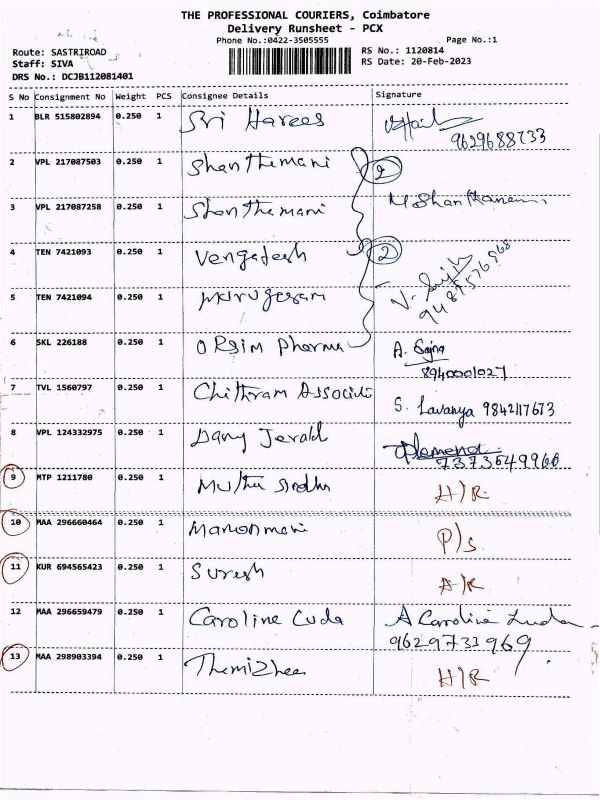 THE PROFESSIONAL COURIERS, Coimbatore
Delivery Runsheet - PCX
Phone No.:0422-3505555 Page No.:1
Route: SASTRIROAD RS No.: 1120814
Staff: SIVA RS Date: 20-Feb-2023
DRS No.: DCJB112081401
S No Consignment No Weight PCS Consignee Details Signature
1 BLR 515802894 0.250 1 Sri Harees
9629688733
2 VPL 217087503 0.250 1 Shanthemani 2
3 VPL 217087258 0.250 1 Shanthemani
4 TEN 7421093 0.250 1 Vengatesh 2
5 TEN 7421094 0.250 1 Murugesan
6 SKL 226188 0.250 1 Pharma A. Sajna
8940001027
7 TVL 1560797 0.250 1 Chithram S. Lavanya
8 VPL 124332975 0.250 1 Dany Jerald
9 MTP 1211780 0.250 1 H/R
10 MAA 296660464 0.250 1 Manonmani P/S
11 KUR 694565423 0.250 1 Suresh A/R
12 MAA 296659479 0.250 1 Caroline Luda A Caroline Luda
9629733969
13 MAA 298903394 0.250 1 H/R